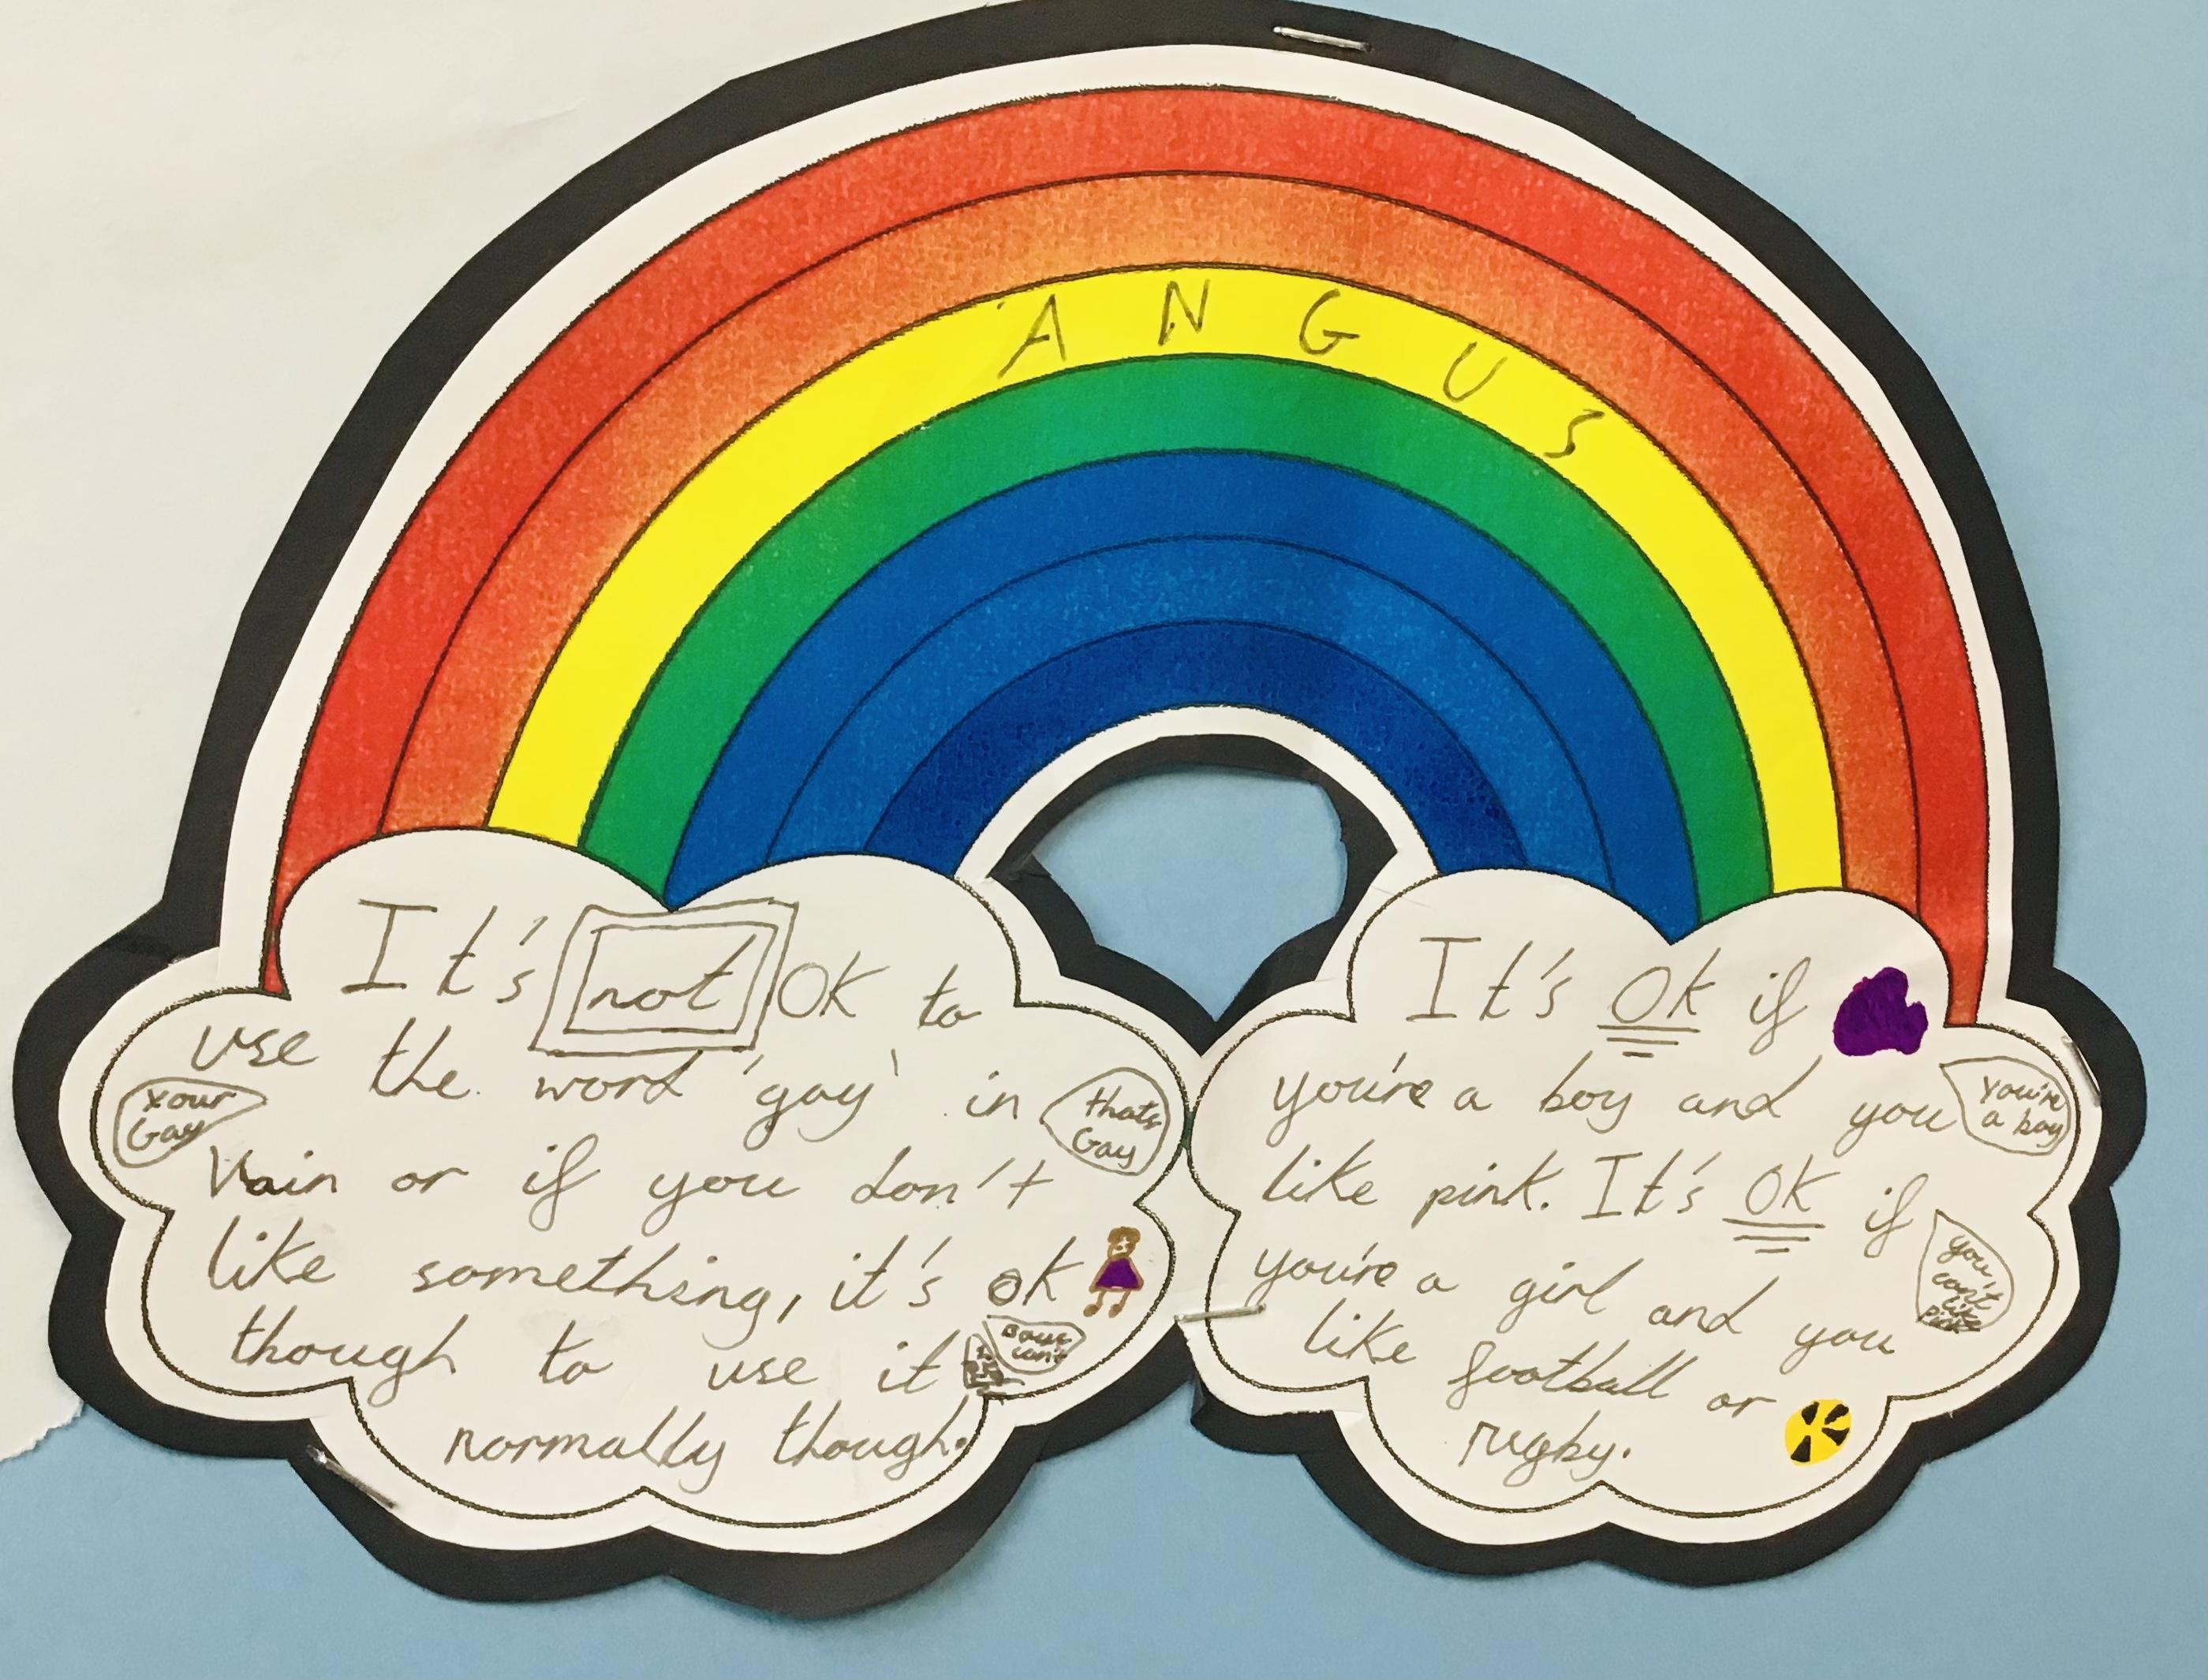 ANGUS
It's not OK to
use the word 'gay' in
vain or if you don't
like something, it's ok
though to use it
normally though.
your
Gay
thats
Gay
your
can't
It's OK if
you're a boy and you
like pink. It's OK if
you're a girl and you
like football or
rugby.
You're
a boy
you
can't
like
pink